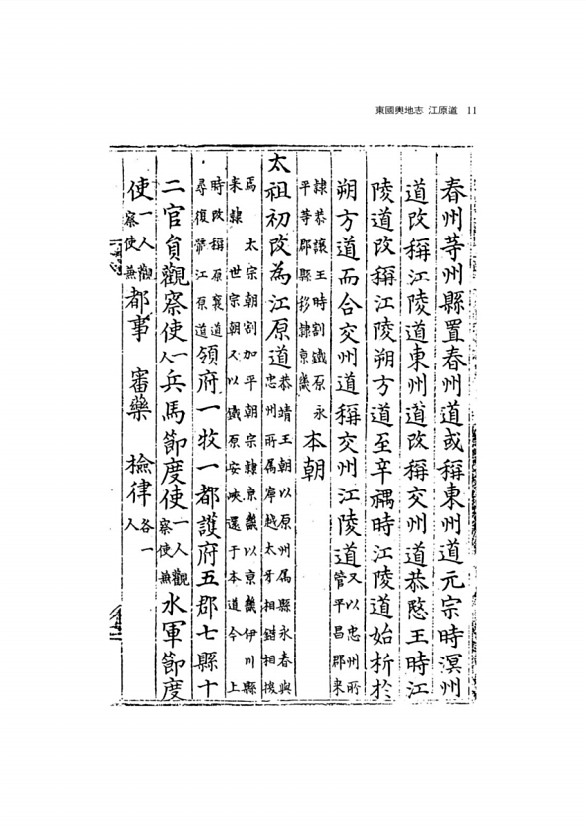 東國輿地志 江原道 11
春州等州縣置春州道或稱東州道元宗時溟州
道改稱江陵道東州道改稱交州道恭愍王時江
陵道改稱江陵朔方道至辛禑時江陵道始析於
朔方道而合交州道稱交州江陵道又以忠州所管平昌郡来
隷恭讓王時割鐵原永平等郡縣移隷京畿本朝
太祖初改為江原道恭靖王朝以原州屬縣永春與忠州所屬寧越太牙相錯相換
焉 太宗朝割加平朝宗隷京畿以京畿伊川縣来隷 世宗朝又以鐵原安峽還于本道今 上
時改稱原襄道尋復舊江原道領府一牧一都護府五郡七縣十
二官員觀察使一人兵馬節度使一人觀察使兼水軍節度
使一人觀察使兼都事 審藥 檢律各一人